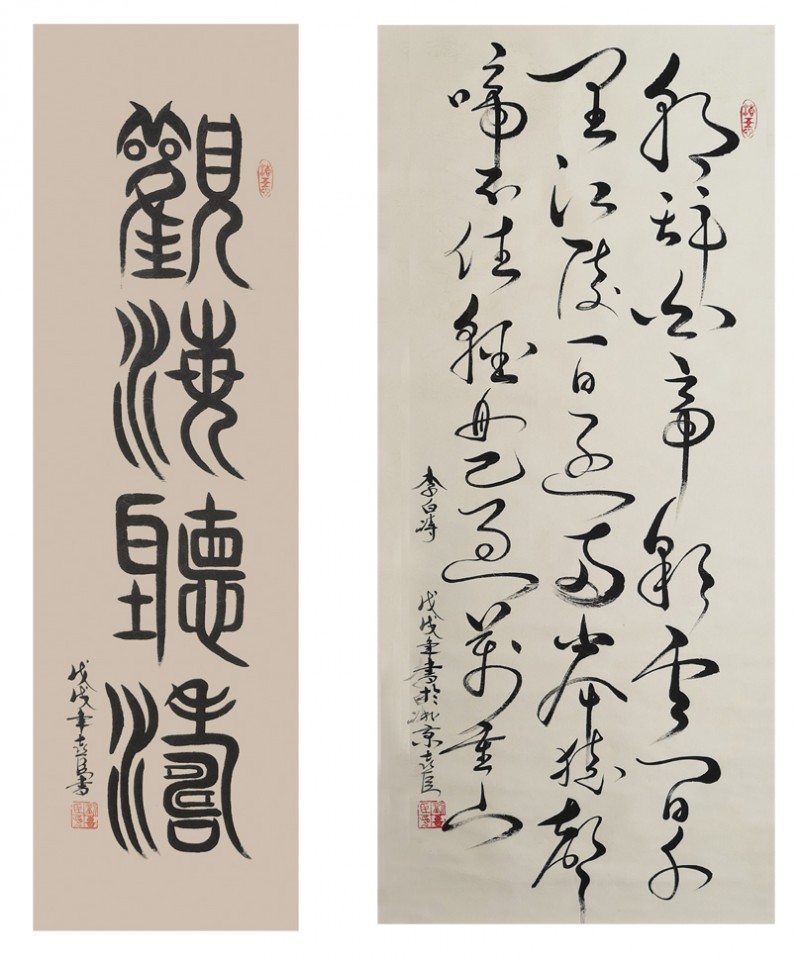 觀海聽濤
戊戌年喜臣書
朝辭白帝彩雲間千
里江陵一日還兩岸猿聲
啼不住輕舟已過萬重山
李白詩
戊戌年書於北京喜臣